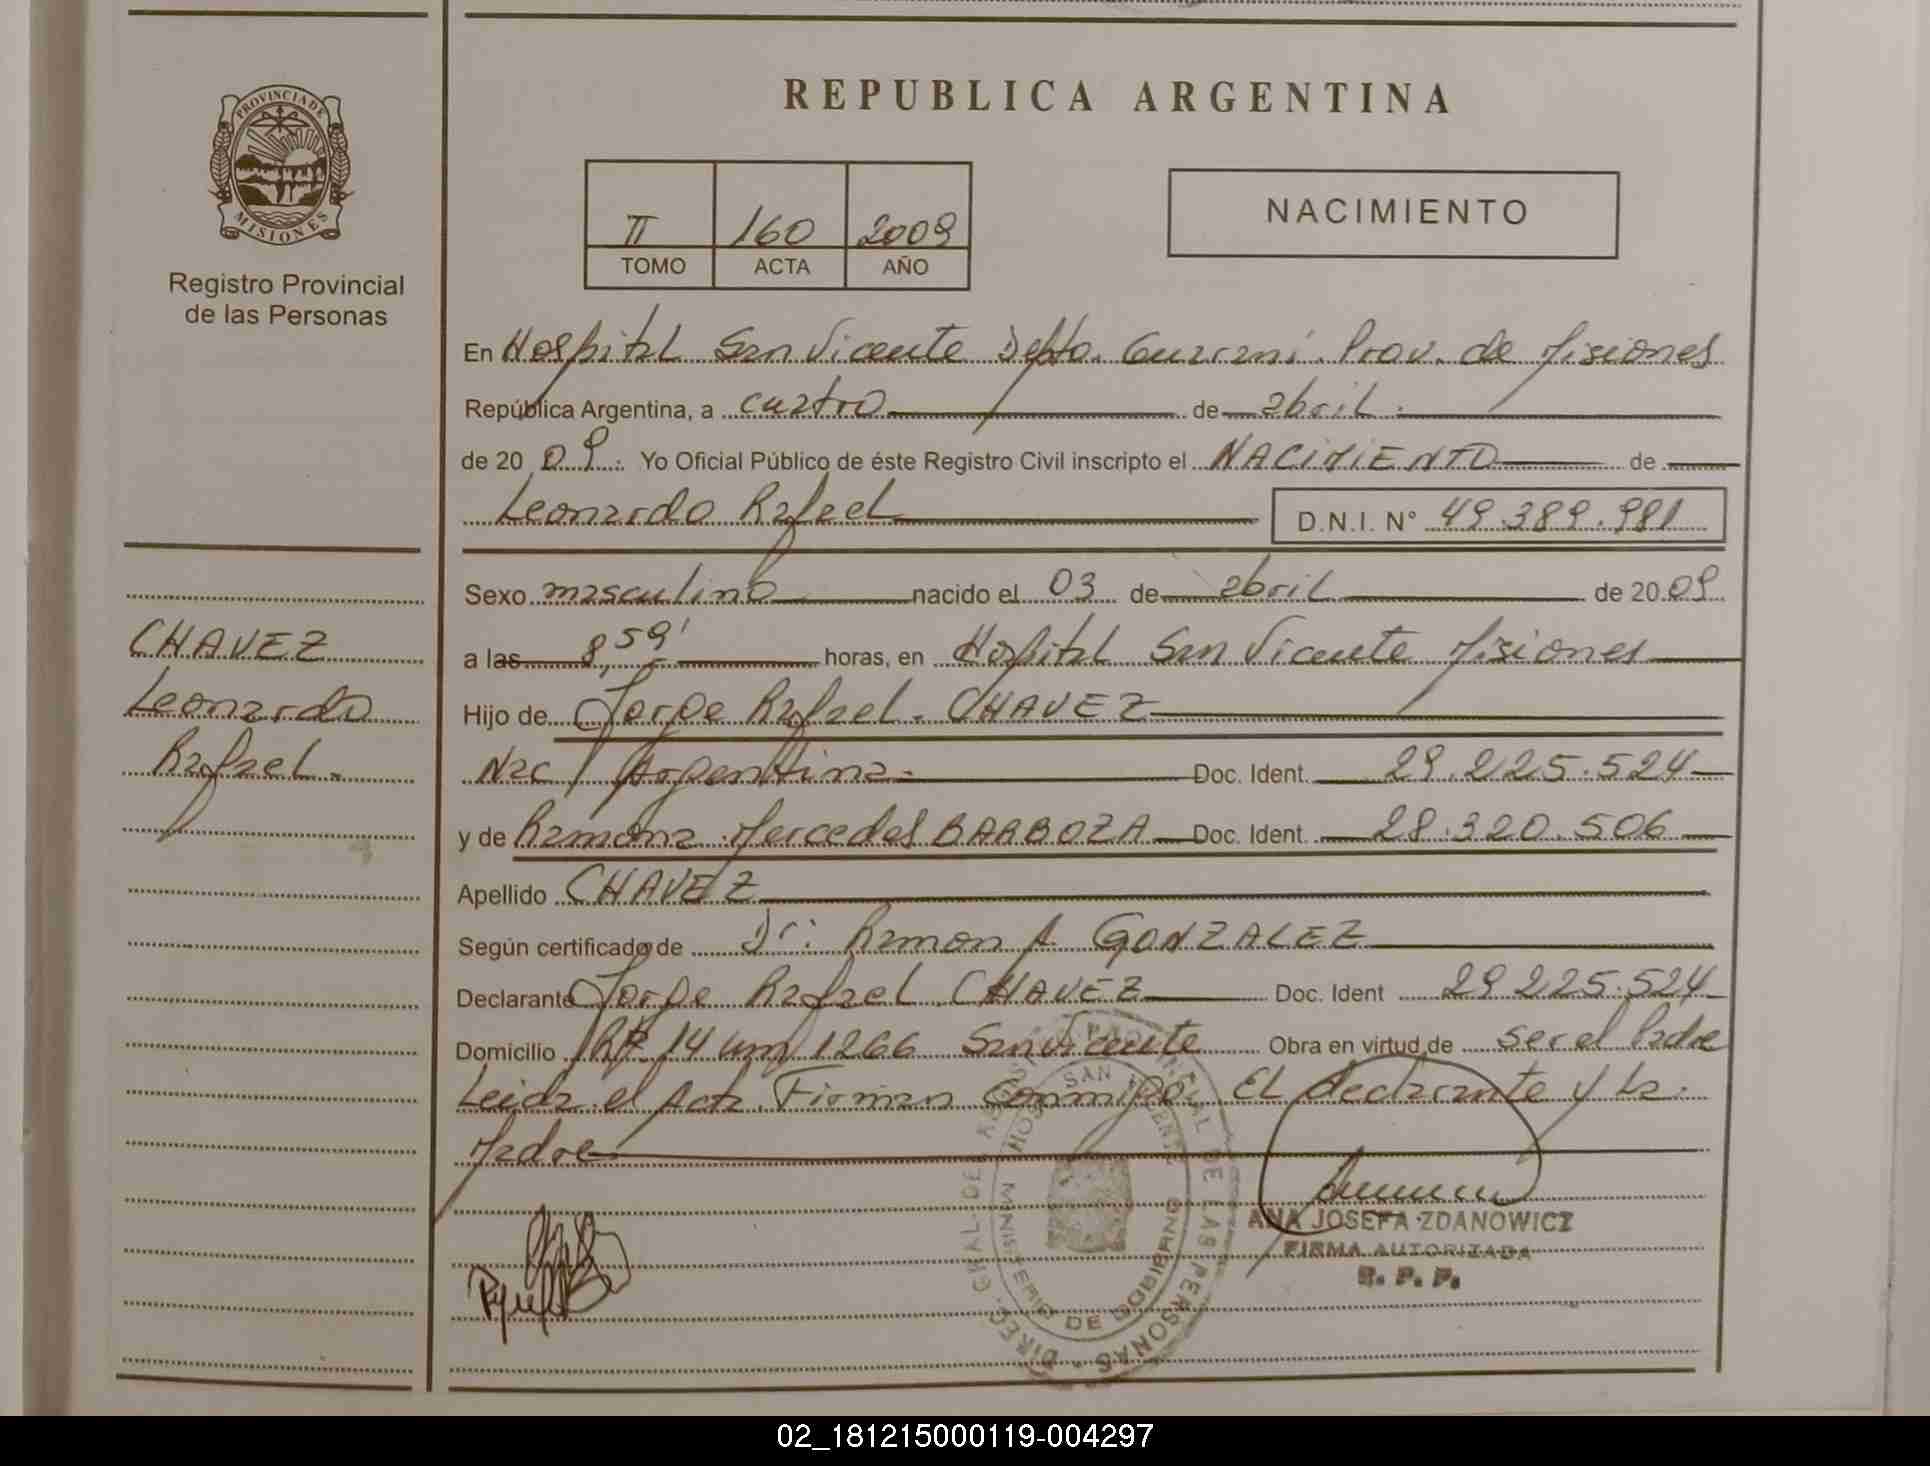 REPUBLICA ARGENTINA
PROVINCIA DE
MISIONES
Registro Provincial
de las Personas
II 160 2009
TOMO ACTA AÑO
NACIMIENTO
En Hospital San Vicente Depto. Guarani. Prov. de Misiones
República Argentina, a cuatro de abril.
de 2009. Yo Oficial Público de éste Registro Civil inscripto el NACIMIENTO de
Leonardo Rafael D.N.I. N° 49.389.981
CHAVEZ
Leonardo
Rafael.
Sexo masculino nacido el 03 de abril de 2009
a las 8,59' horas, en Hospital San Vicente Misiones
Hijo de Jorge Rafael. CHAVEZ
Nac/ Argentina. Doc. Ident. 29.225.524
y de Ramona Mercedes BARBOZA Doc. Ident. 28.320.506
Apellido CHAVEZ
Según certificado de Dr: Ramon A. GONZALEZ
Declarante Jorge Rafael CHAVEZ Doc. Ident 29 225.524
Domicilio RP. 14 km 1266 San Vicente Obra en virtud de ser el Padre
Leida el Acta Firman Conmigo: El declarante y La
Madre
DIREC. GRAL. DEL REGISTRO PROVINCIAL DE LAS PERSONAS
HOSP. SAN VICENTE
MINISTERIO DE GOBIERNO
ANA JOSEFA ZDANOWICZ
FIRMA AUTORIZADA
R. P. P.
02_181215000119-004297